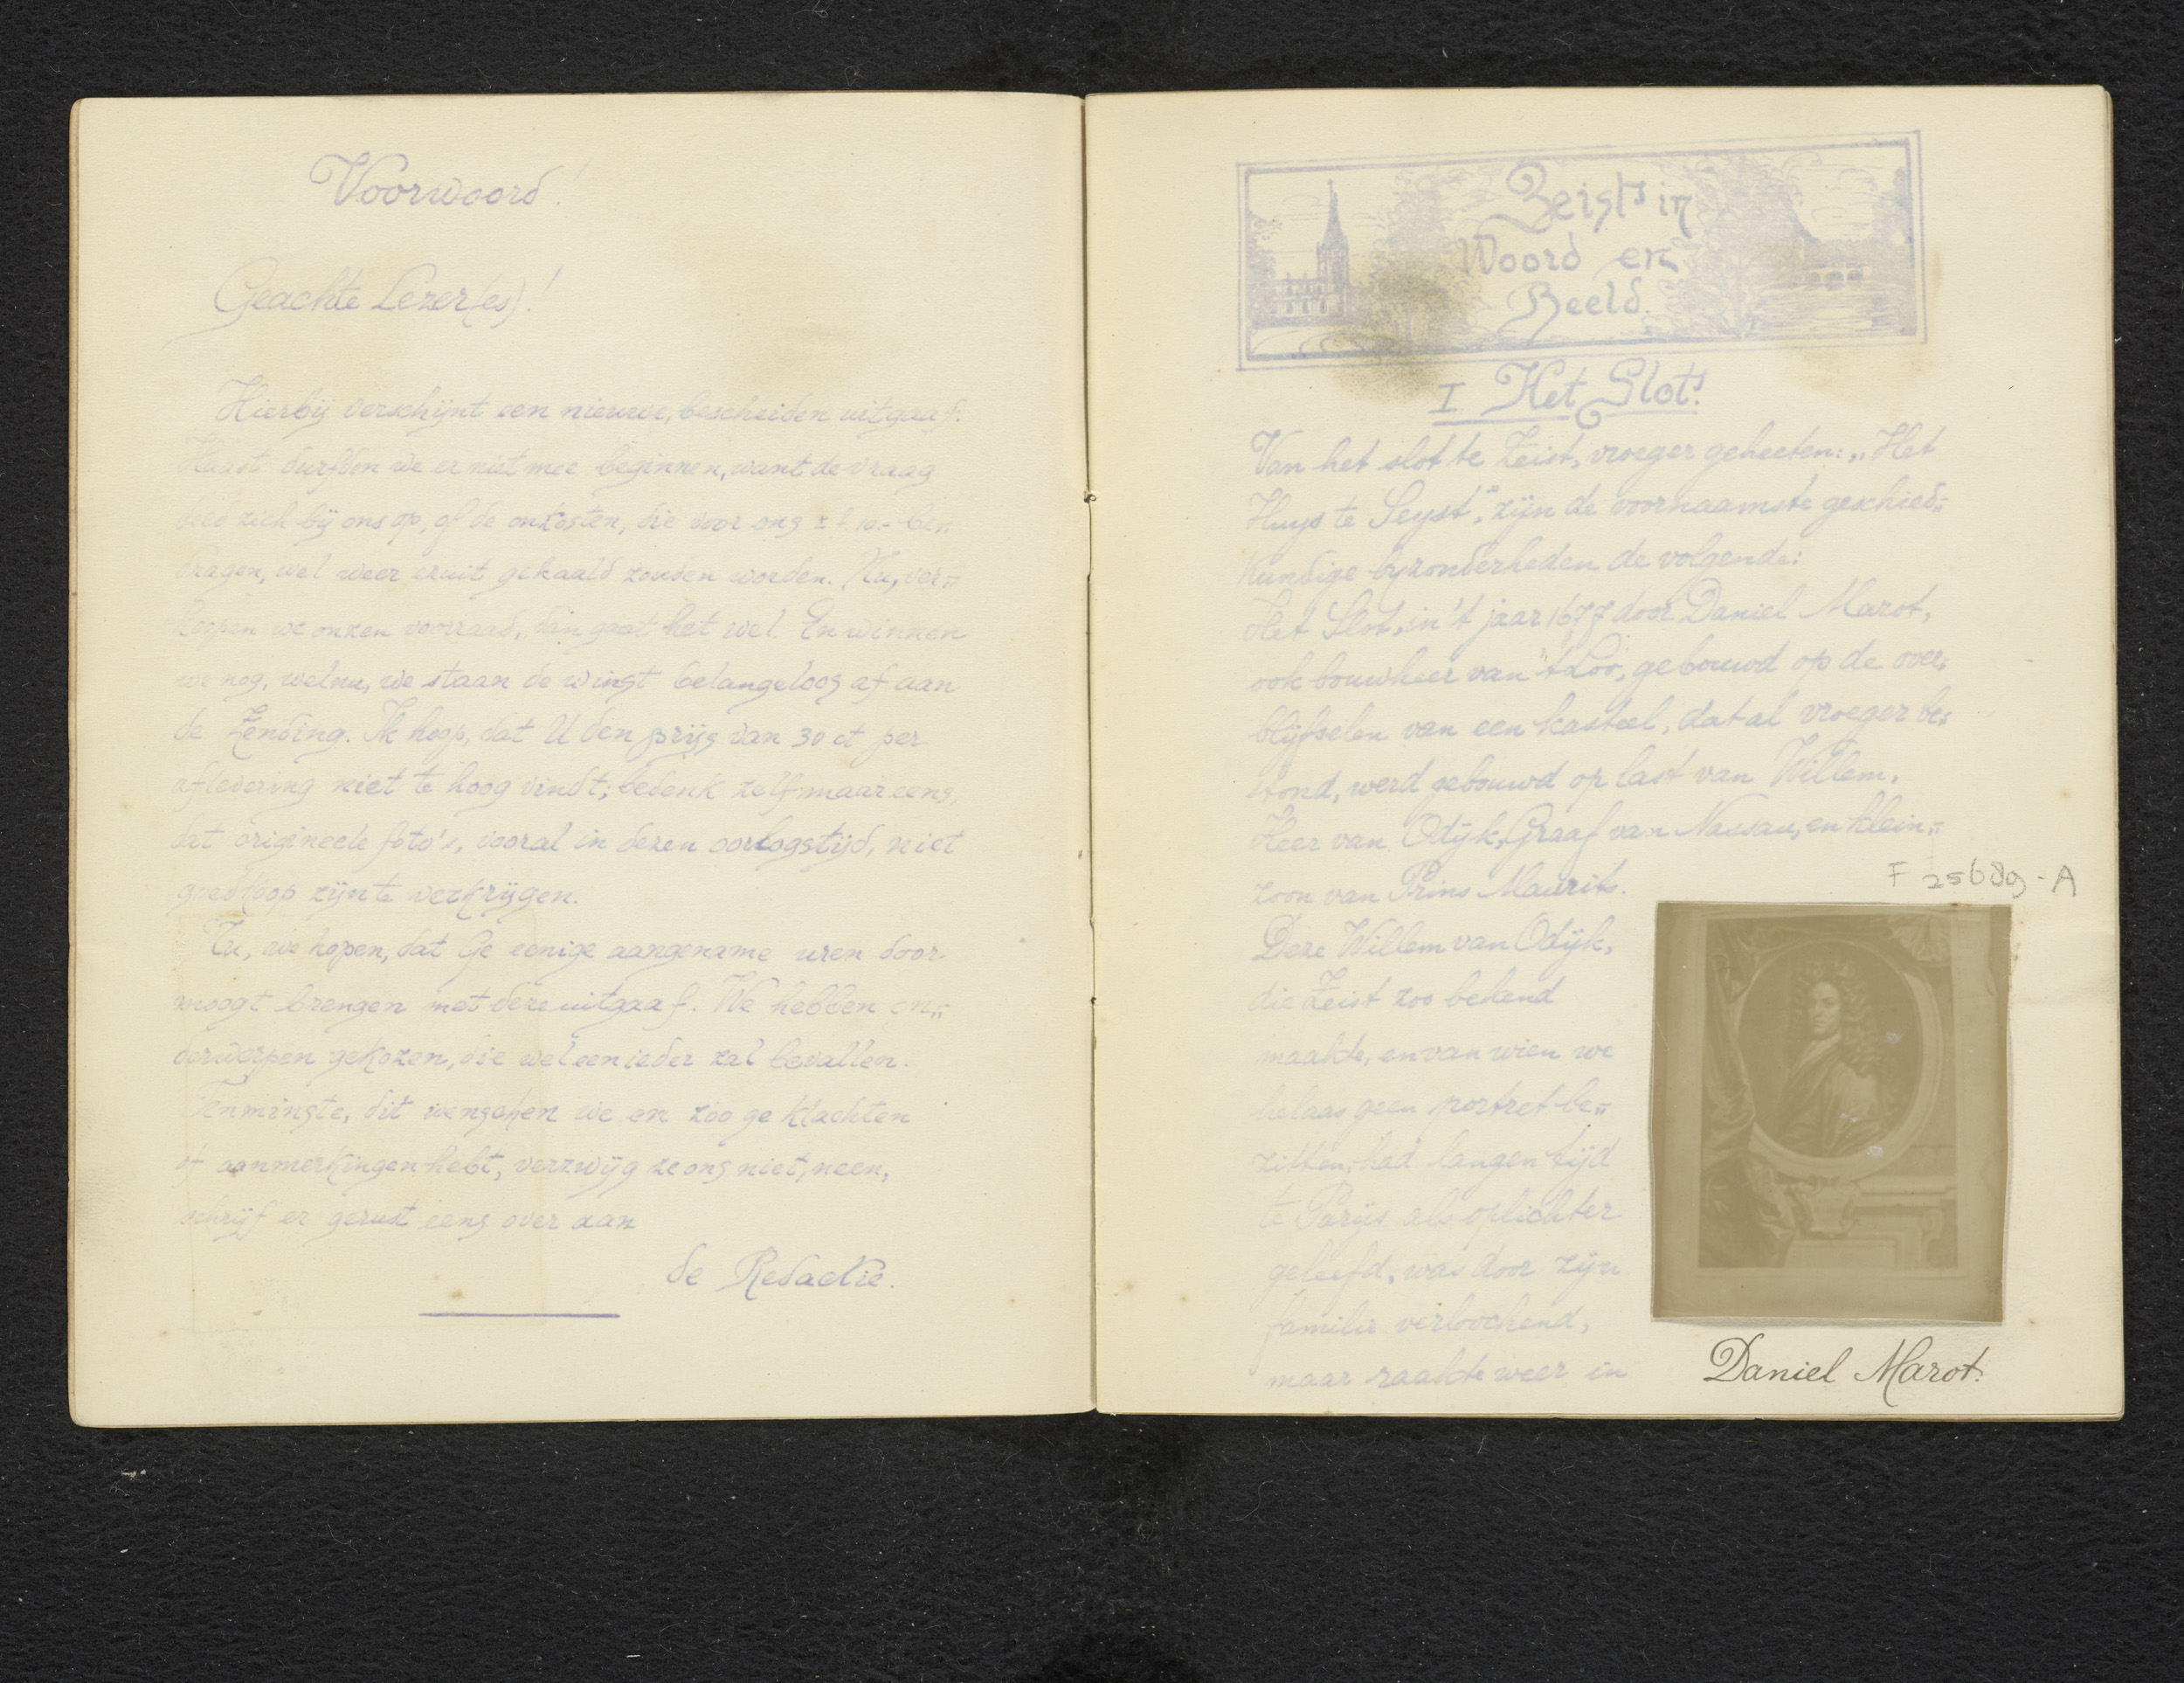 Voorwoord!
Geachte Lezer(es)!
Hierbij verschijnt een nieuwe, bescheiden uitgaaf.
Haast durfden we er niet mee beginnen, want de vraag
deed zich bij ons op, of de onkosten, die voor ons ± f. 10.- be„
dragen, wel weer eruit gehaald zouden worden. Nu, ver„
koopen we onzen voorraad, dan gaat het wel. En winnen
we nog, welnu, we staan de winst belangeloos af aan
de Zending. Ik hoop, dat U den prijs van 30 ct per
aflevering niet te hoog vindt; bedenk zelf maar eens,
dat origineele foto's, vooral in dezen oorlogstijd, niet
goedkoop zijn te verkrijgen.
Nu, we hopen, dat Ge eenige aangename uren door
moogt brengen met deze uitgaaf. We hebben on„
derwerpen gekozen, die wel eenieder zal bevallen.
Tenminste, dit wenschen we en zoo ge klachten
of aanmerkingen hebt, verzwijg ze ons niet, neen,
schrijf er gerust eens over aan
de Redactie.
Zeist in
Woord en
Beeld.
I Het Slot.
Van het slot te Zeist, vroeger geheeten: „Het
Huys te Seyst", zijn de voornaamste geschied„
kundige byzonderheden de volgende:
Het Slot, in 't jaar 1677 door Daniel Marot,
ook bouwheer van 't Loo, gebouwd op de over„
blijfselen van een kasteel, dat al vroeger be„
stond, werd gebouwd op last van Willem,
Heer van Odijk, Graaf van Nassau, en klein„
zoon van Prins Maurits.
F 25689-A
Deze Willem van Odijk,
die Zeist zoo bekend
maakte, en van wien we
helaas geen portret be„
zitten, had langen tijd
te Parijs als oplichter
geleefd, was door zijn
familie verloochend,
maar raakte weer in
Daniel Marot.